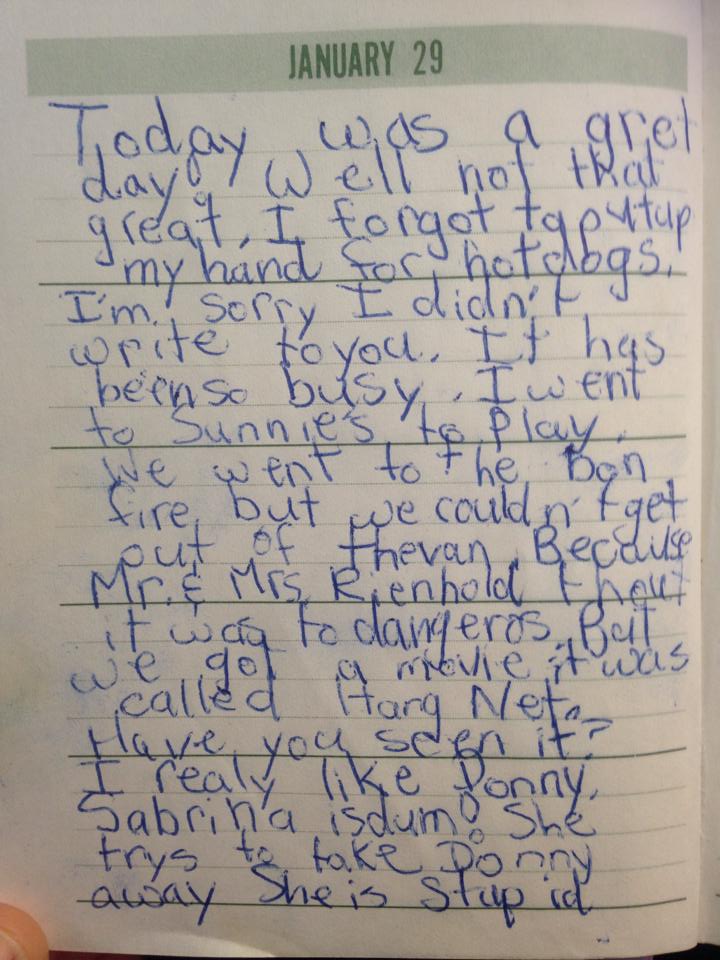 JANUARY 29
Today was a gret
day! Well not that
great. I forgot to putup
my hand for hotdogs.
I'm sorry I didn't
write to you. It has
been so busy. I went
to Sunnie's to play.
We went to the bon
fire but we couldn't get
out of thevan. Because
Mr. & Mrs. Rienhold thout
it was to dangeros. But
we got a movie it was
called Harg Net.
Have you seen it?
I realy like Donny.
Sabrina isdum! She
trys to take Donny
away She is stupid